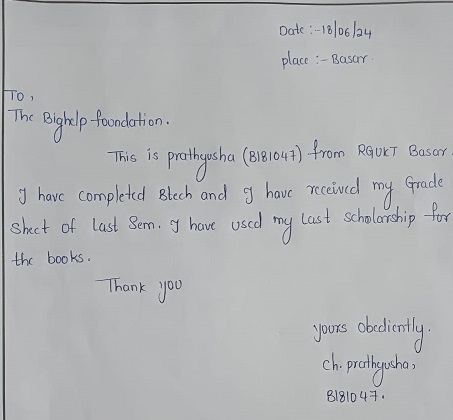 Date :- 18/06/24
place :- Basar.
To,
The Bighelp foundation.
This is prathyusha (B181047) from RGUKT Basar.
I have completed Btech and I have received my Grade
Sheet of Last Sem. I have used my Last Scholarship for
the books.
Thank you
yours obediently.
Ch. prathyusha,
B181047.